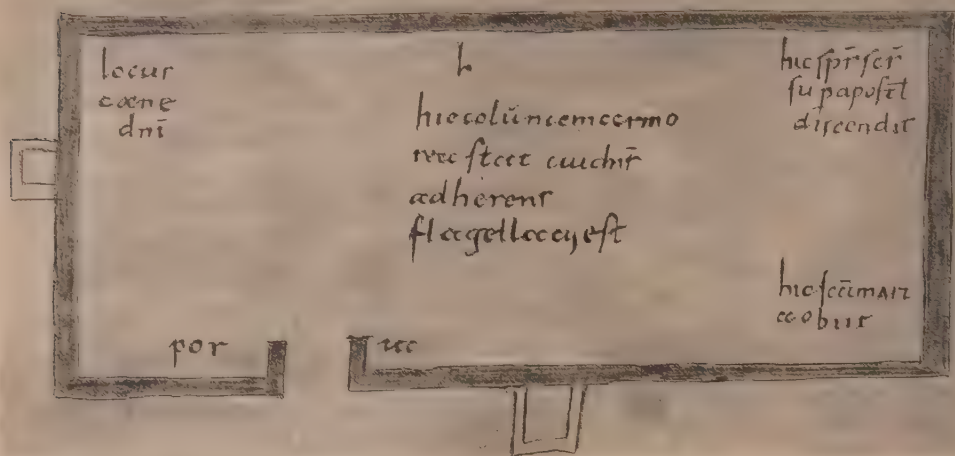 locus
caene
dnī
h
hic colūna marmo
rea stat cui dn̄s
adherens
flagellatꝰ est
hic sp̄s sc̄s
sup apostl̄
discendit
hic sc̄a mari
a obiit
por ta